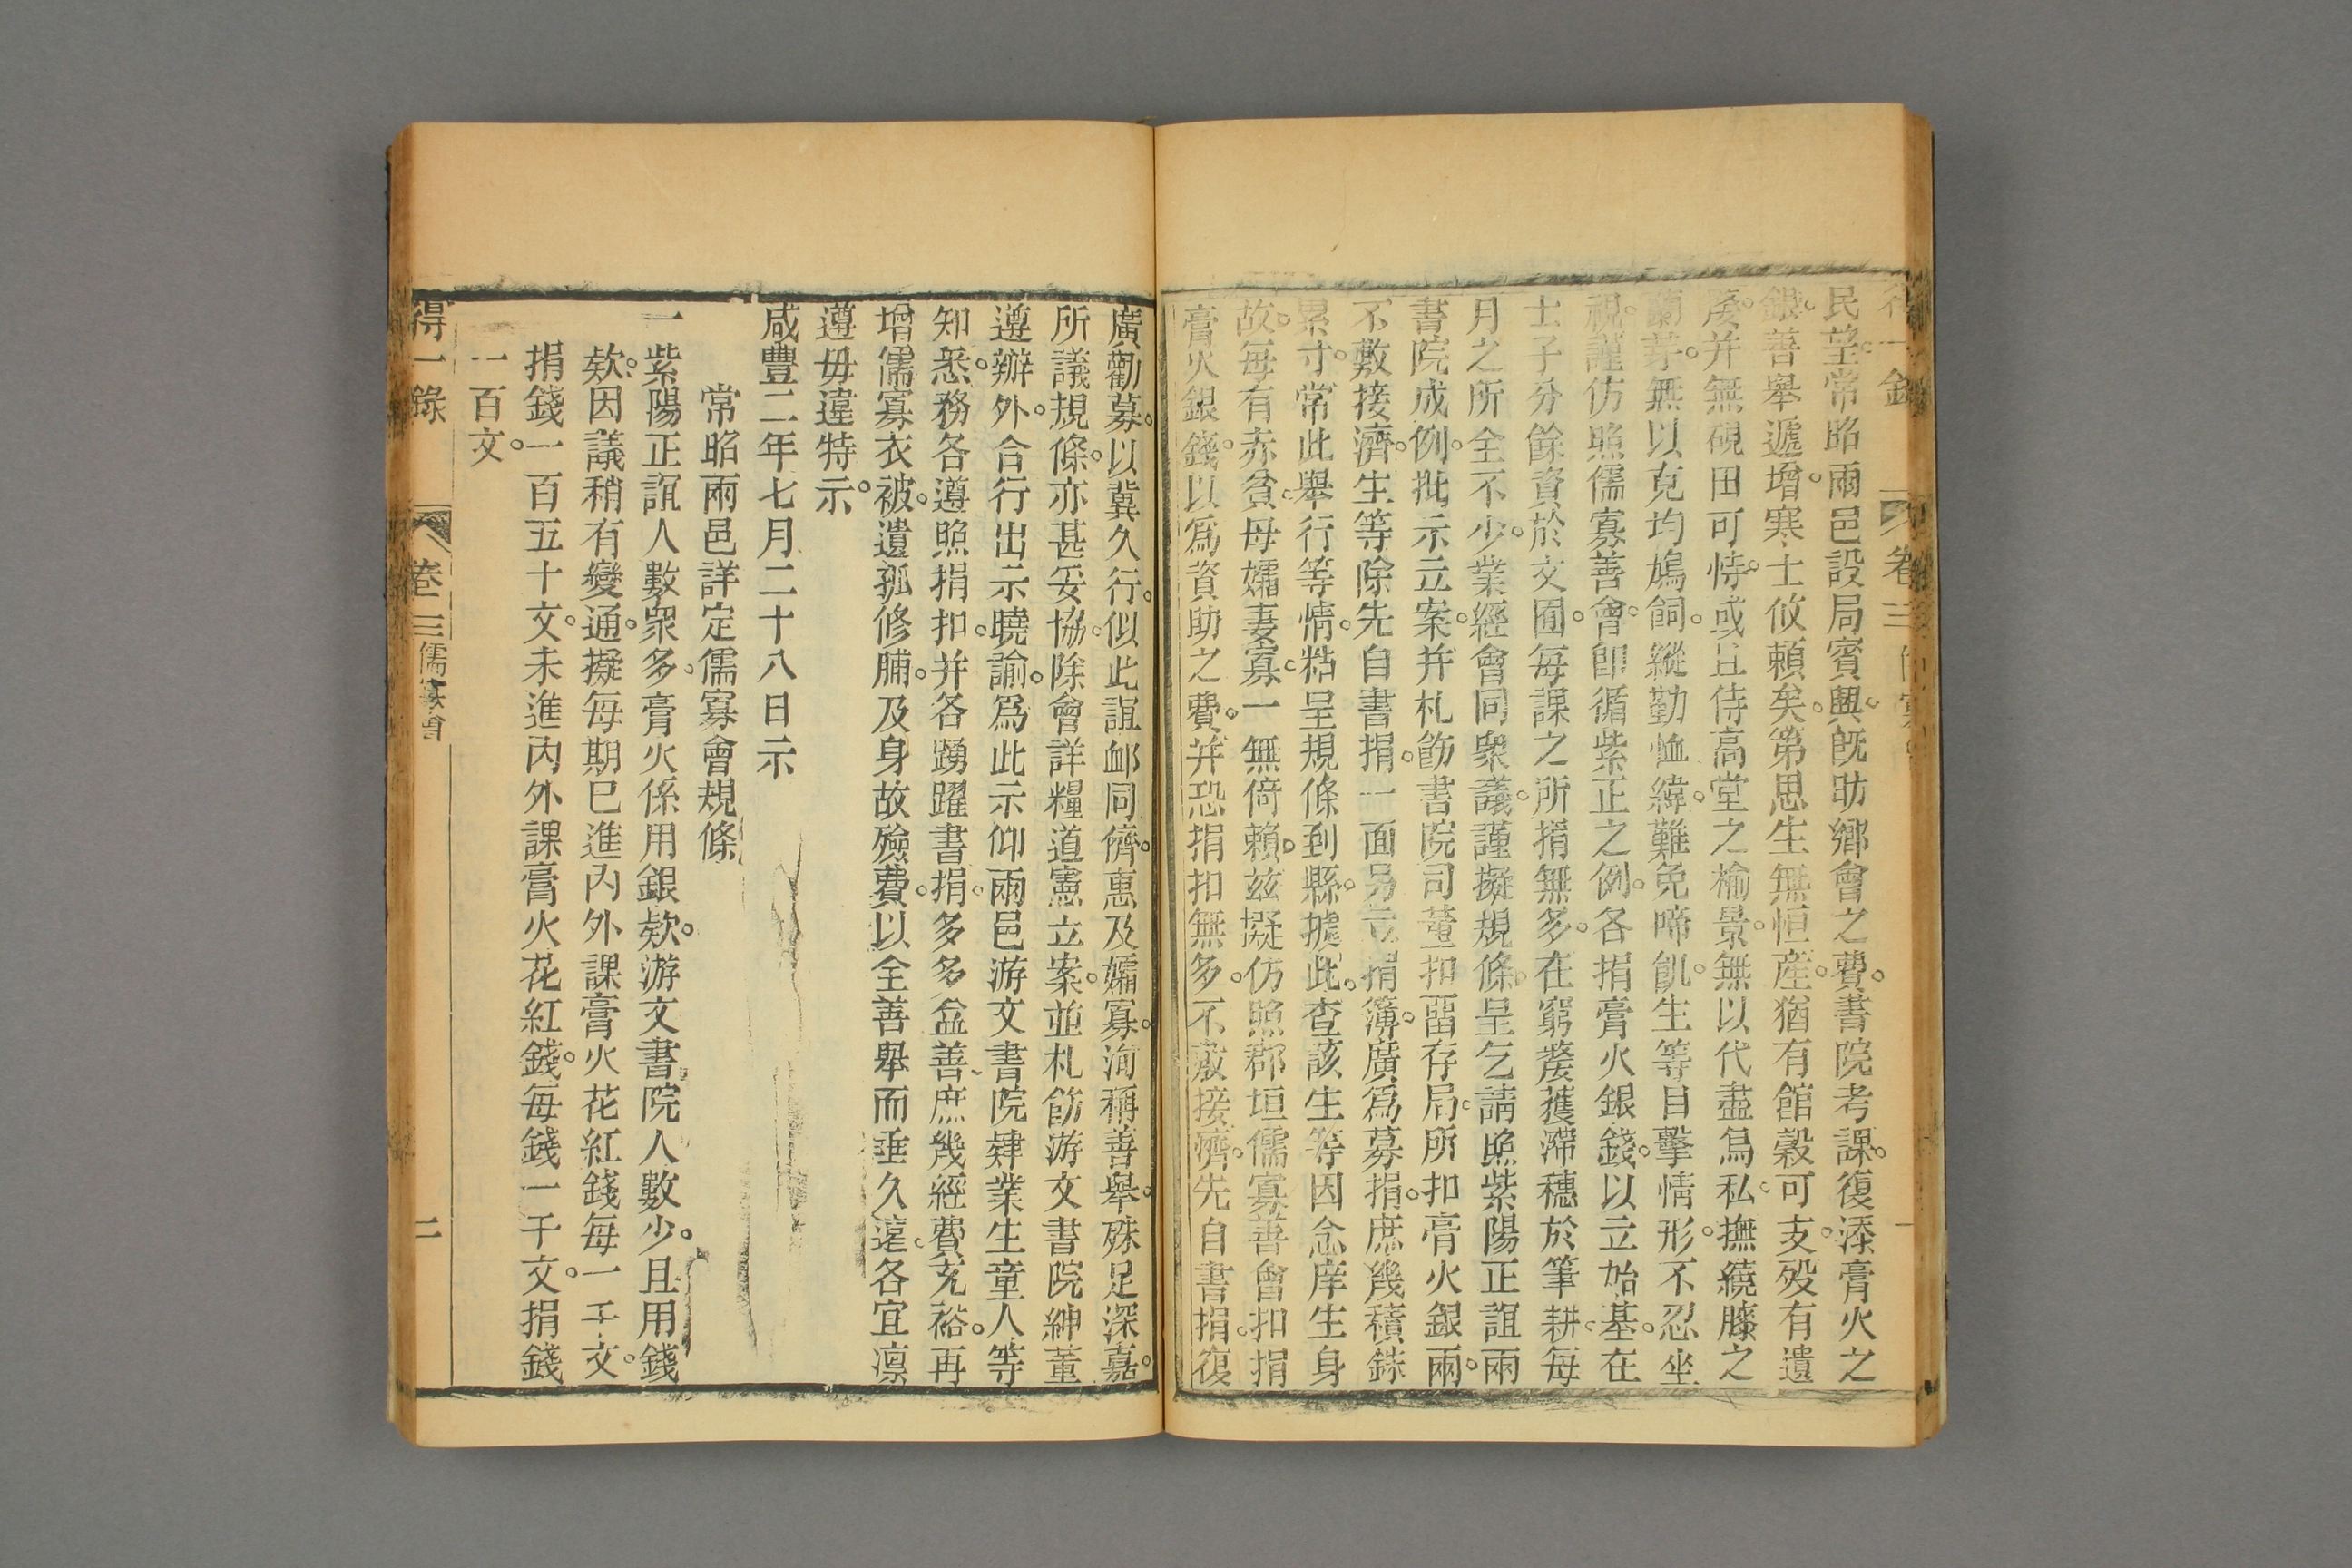 民望。常昭兩邑設局賓興。旣助鄉會之費。書院考課。復添膏火之
銀。善舉遞增。寒士攸賴矣。第思生無恒産。猶有館穀可支。歿有遺
嫠。并無硯田可恃。或且侍高堂之榆景。無以代盡烏私。撫繞膝之
蘭芽。無以克均鳩飼。縱勤恤緯。難免啼飢。生等目擊情形。不忍坐
視。謹仿照儒寡善會。卽循紫正之例。各捐膏火銀錢。以立始基。在
士子分餘資於文囿。每課之所捐無多。在窮嫠獲滯穗於筆耕。每
月之所全不少。業經會同衆議。謹擬規條。呈乞請照紫陽正誼兩
書院成例。批示立案。并札飭書院司董扣畱存局。所扣膏火銀兩。
不敷接濟。生等除先自書捐。一面另立捐簿。廣爲募捐。庶幾積銖
累寸。常此舉行等情。粘呈規條到縣。據此。查該生等因念庠生身
故。每有赤貧母孀妻寡。一無倚賴。茲擬仿照郡垣儒寡善會扣捐
膏火銀錢。以爲資助之費。并恐捐扣無多。不敷接濟。先自書捐。復
廣勸募。以冀久行。似此誼䘏同儕。惠及孀寡。洵稱善舉。殊足深嘉。
所議規條。亦甚妥協。除會詳糧道憲立案。並札飭游文書院紳董
遵辦外。合行出示曉諭。爲此示仰兩邑游文書院肄業生童人等
知悉。務各遵照捐扣。并各踴躍書捐。多多益善。庶幾經費充裕。再
增儒寡衣被。遺孤修脯。及身故殮費。以全善舉而垂久遠。各宜凛
遵毋違特示。
咸豐二年七月二十八日示
常昭兩邑詳定儒寡會規條
一紫陽正誼人數衆多。膏火係用銀欵。游文書院人數少。且用錢
欵。因議稍有變通。擬每期已進內外課膏火花紅錢每一千文。
捐錢一百五十文。未進內外課膏火花紅錢。每錢一千文。捐錢
一百文。
得一錄 卷三 儒寡會 二